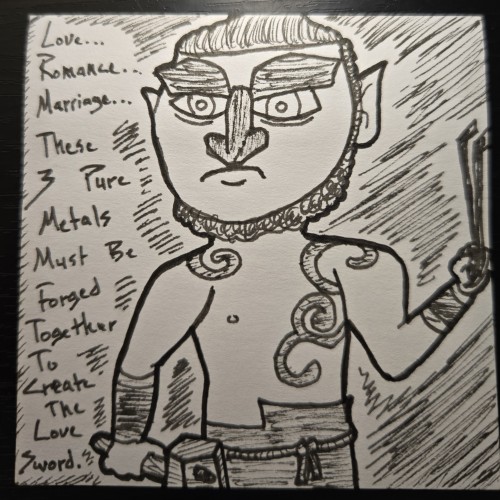 Love...
Romance...
Marriage...
These
3 Pure
Metals
Must Be
Forged
Together
To
Create
The
Love
Sword."